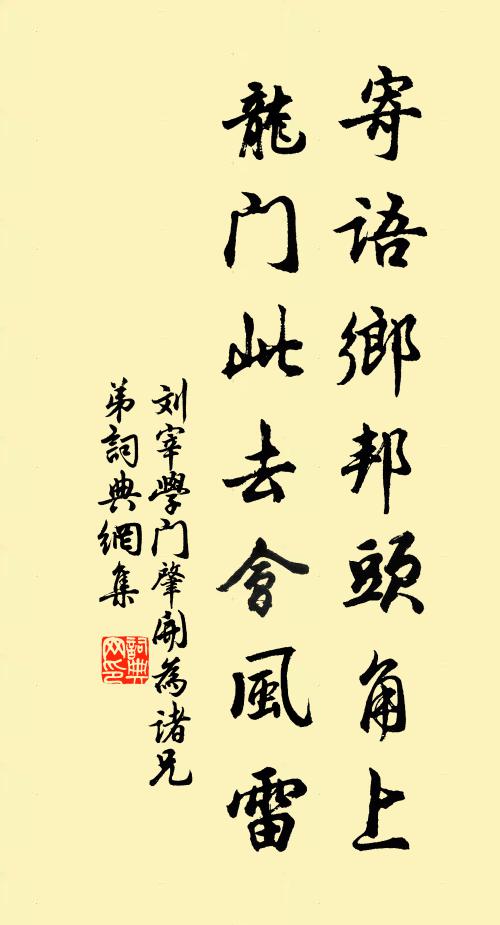 寄語鄉邦頭角上
龍门此去會風雷
刘宰學门肇開為諸兄
弟詞典網集
詞典
网印